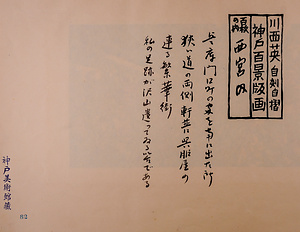 川西英 自刻自摺
神戸百景版画
百枚の内
西宮内
兵庫門口町の東を南に出た所
狭い道の両側軒並に呉服屋の
連る繁華街
私の足跡が沢山遺ってゐる筈である
神戸美術館蔵